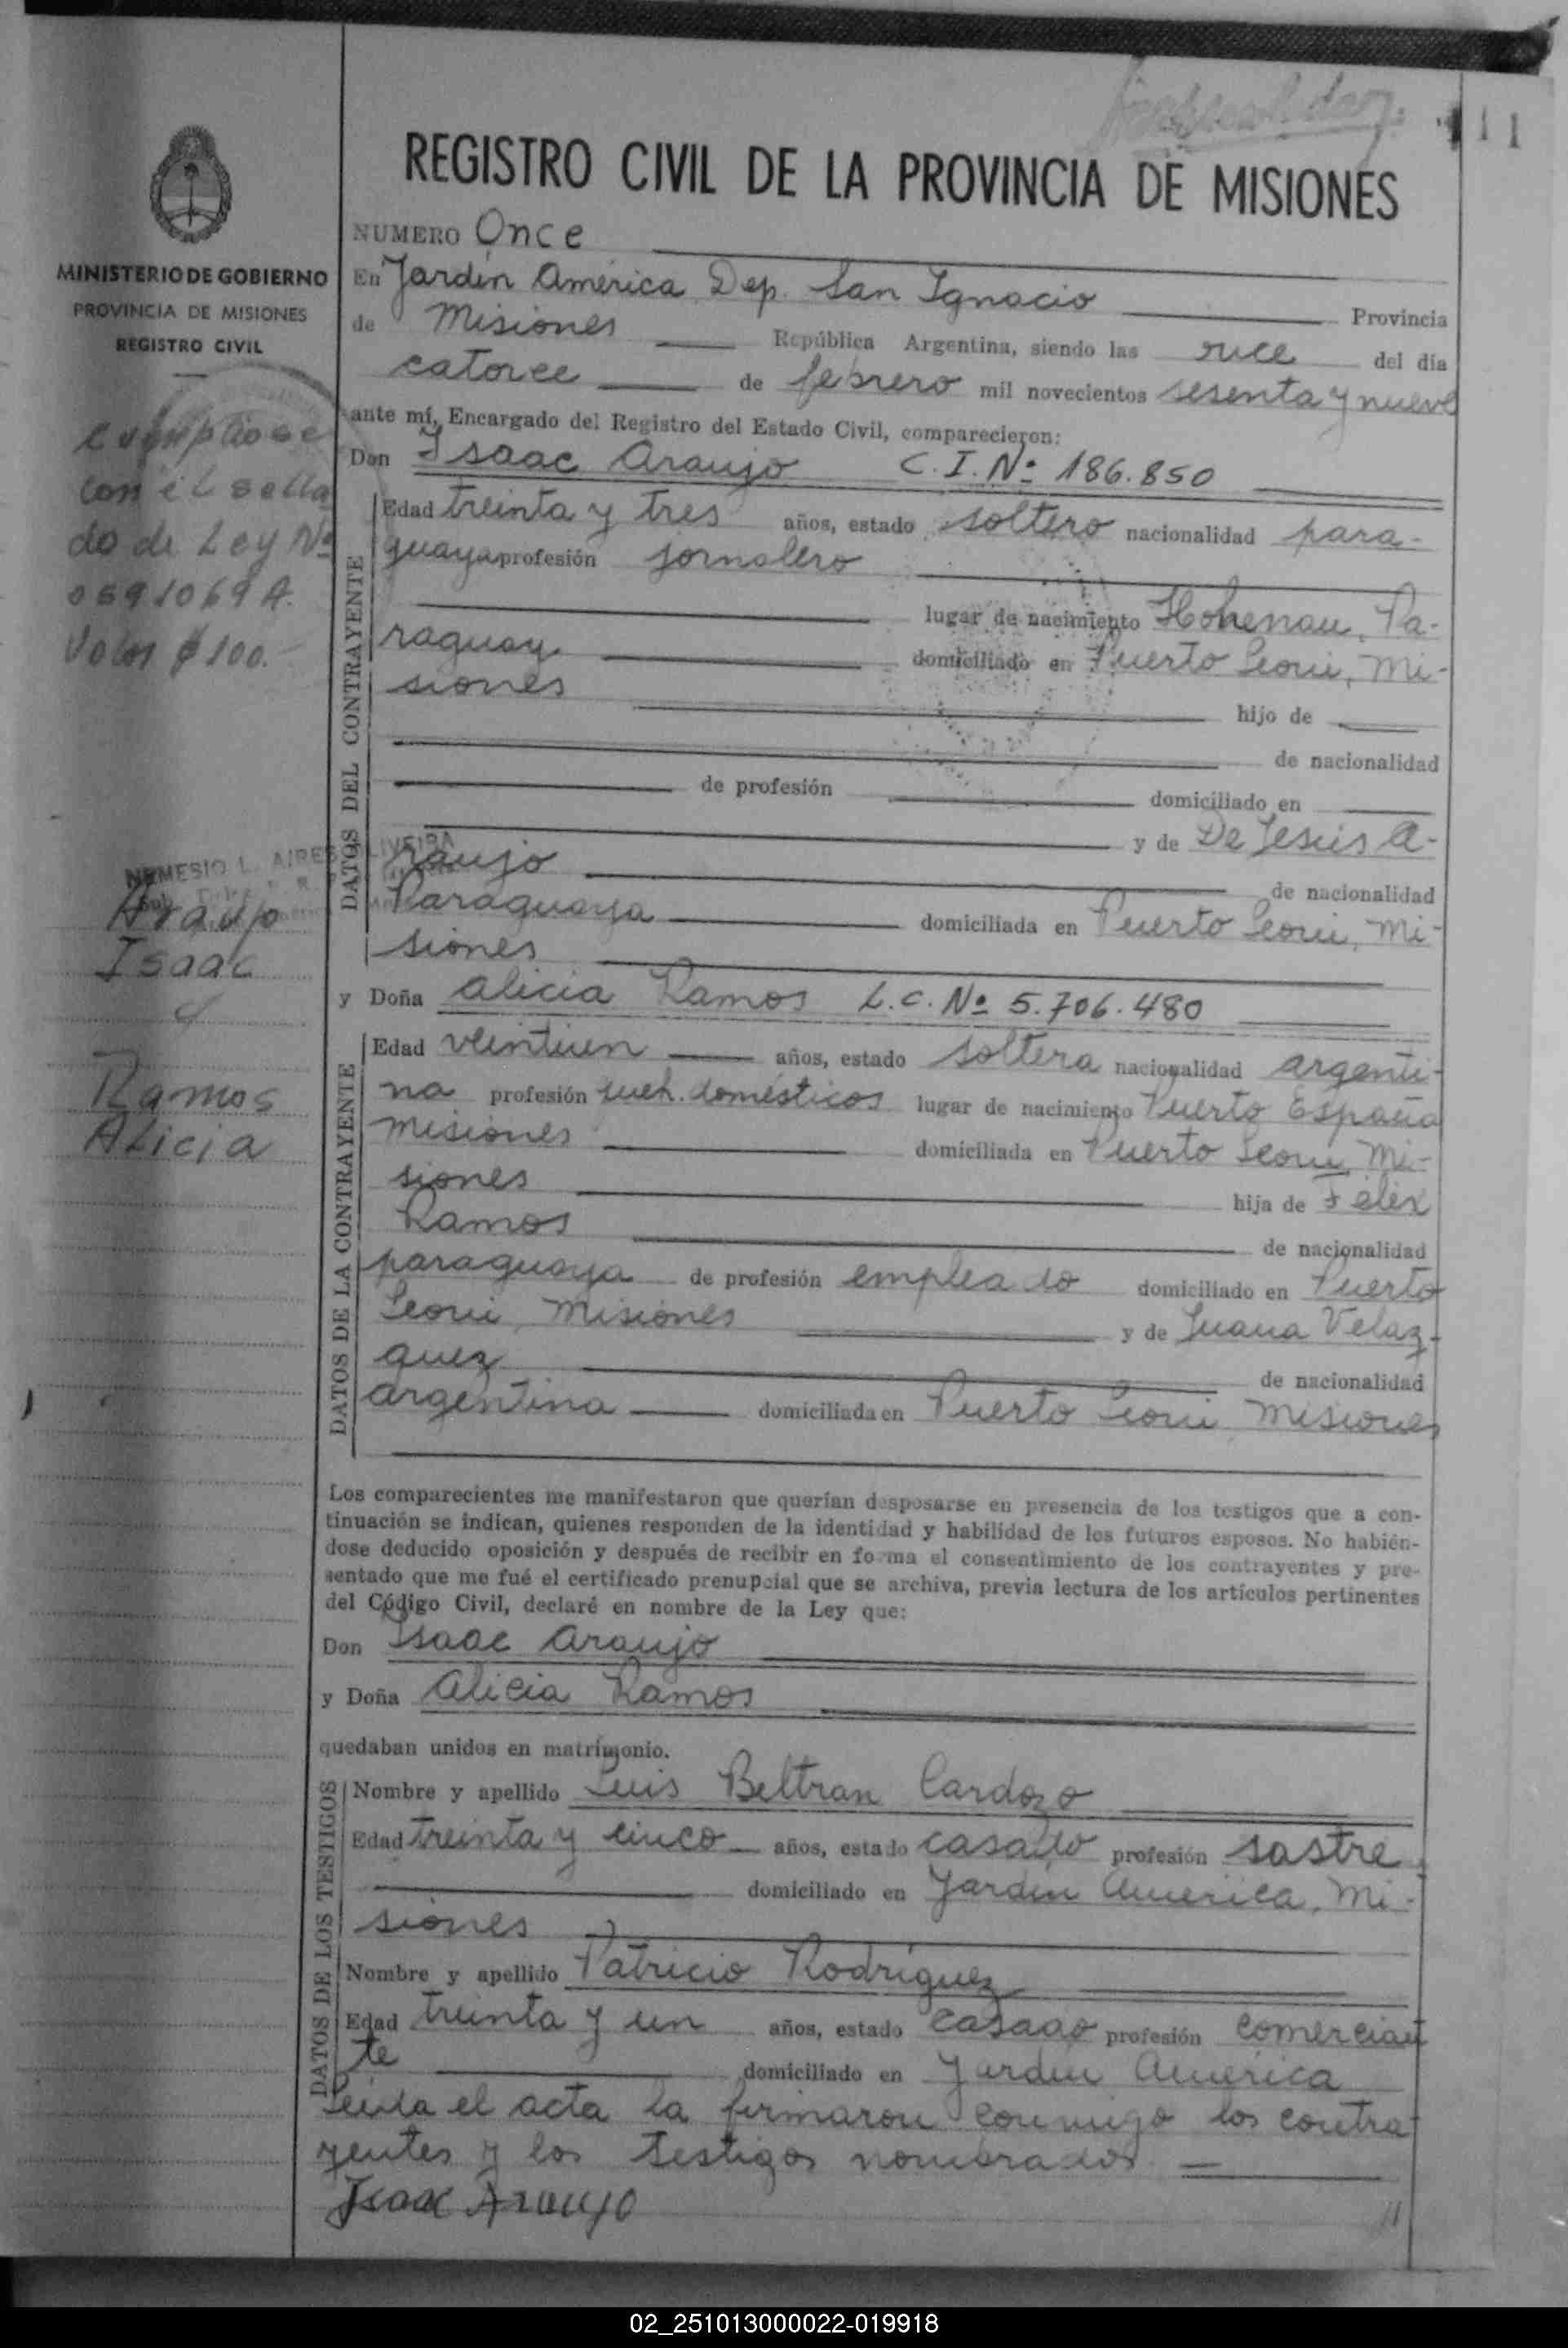 11
REGISTRO CIVIL DE LA PROVINCIA DE MISIONES
MINISTERIO DE GOBIERNO
PROVINCIA DE MISIONES
REGISTRO CIVIL
con el sella
do de Ley Nº
0691069 A.
Valor $ 100.-
NEMESIO L. AIRES OLIVEIRA
Araujo
Isaac
y
Ramos
Alicia
NUMERO Once
En Jardín América Dep. San Ignacio Provincia
de Misiones República Argentina, siendo las once del día
catorce de febrero mil novecientos sesenta y nueve
ante mí, Encargado del Registro del Estado Civil, comparecieron:
Don Isaac Araujo C.I.Nº 186.850
DATOS DEL CONTRAYENTE
Edad treinta y tres años, estado soltero nacionalidad para-
guaya profesión jornalero
lugar de nacimiento Hohenau, Pa-
raguay. domiciliado en Puerto Leoni, Mi-
siones hijo de
de nacionalidad
de profesión domiciliado en
y de De Jesús A-
raujo de nacionalidad
Paraguaya domiciliada en Puerto Leoni, Mi-
siones
y Doña Alicia Ramos L.C. Nº 5.706.480
DATOS DE LA CONTRAYENTE
Edad veintiun años, estado soltera nacionalidad argenti-
na profesión queh. domésticos lugar de nacimiento Puerto España
Misiones domiciliada en Puerto Leoni, Mi-
siones hija de Félix
Ramos de nacionalidad
paraguaya de profesión empleado domiciliado en Puerto
Leoni, Misiones y de Juana Velaz-
quez de nacionalidad
argentina domiciliada en Puerto Leoni Misiones
Los comparecientes me manifestaron que querían desposarse en presencia de los testigos que a con-
tinuación se indican, quienes responden de la identidad y habilidad de los futuros esposos. No habién-
dose deducido oposición y después de recibir en forma el consentimiento de los contrayentes y pre-
sentado que me fué el certificado prenupcial que se archiva, previa lectura de los artículos pertinentes
del Código Civil, declaré en nombre de la Ley que:
Don Isaac Araujo
y Doña Alicia Ramos
quedaban unidos en matrimonio.
DATOS DE LOS TESTIGOS
Nombre y apellido Luis Beltran Cardozo
Edad treinta y cinco años, estado casado profesión sastre
domiciliado en Jardín América, Mi-
siones
Nombre y apellido Patricio Rodríguez
Edad treinta y un años, estado casado profesión comercian
te domiciliado en Jardín América
Leída el acta la firmaron conmigo los contra-
yentes y los testigos nombrados.
Isaac Araujo
02_251013000022-019918